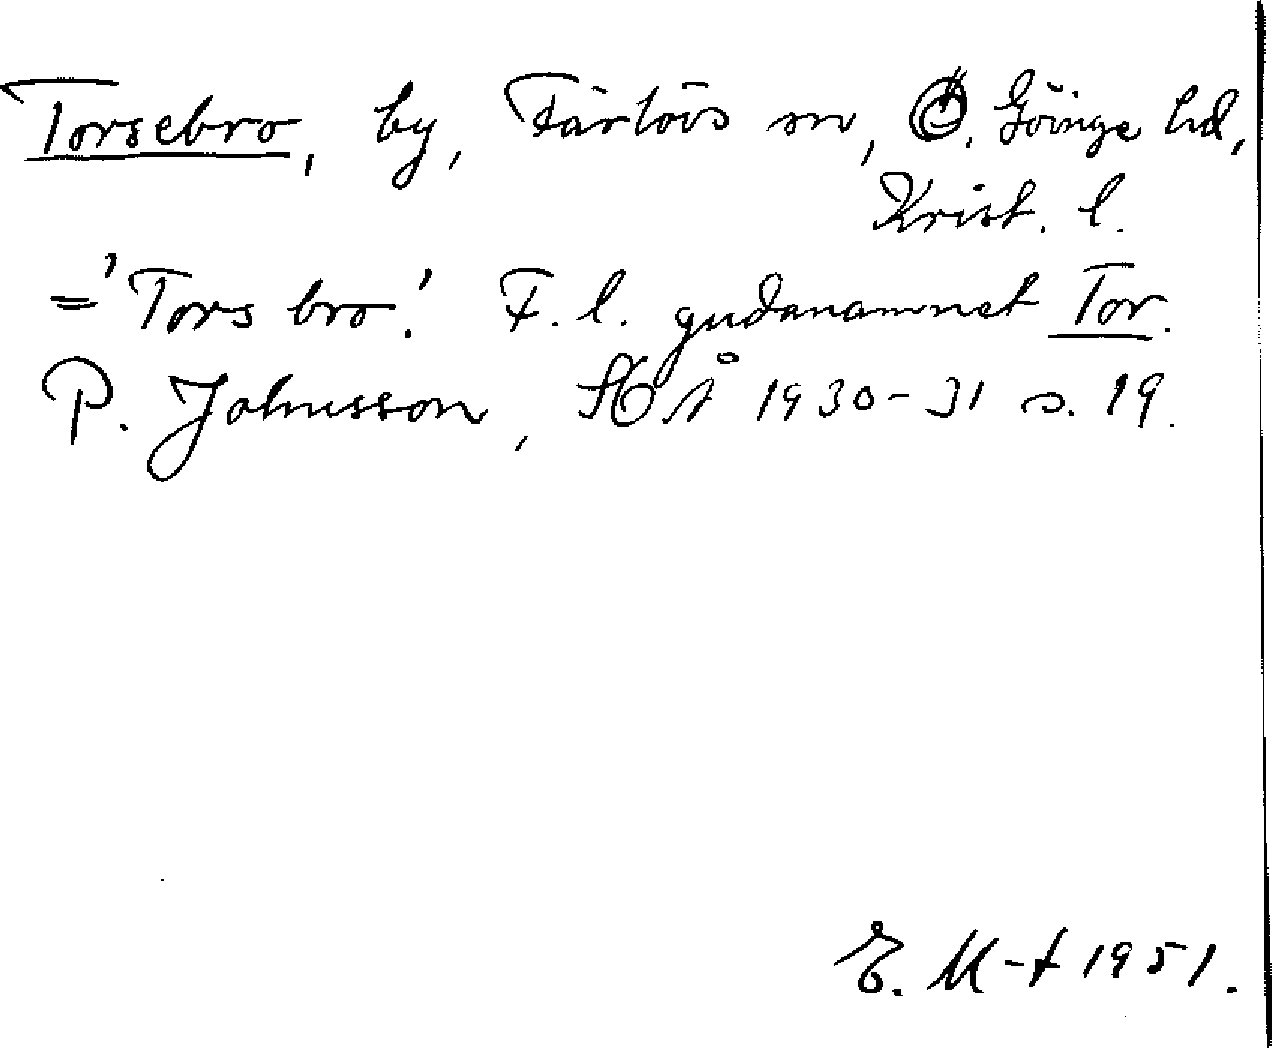 Torsebro, by, Färlövs sn, Ö. Göinge hd,
Krist. l.
= 'Tors bro'. F. l. gudanamnet Tor.
P. Johnsson, SHÅ 1930-31 s. 19.
E. M-t 1951.